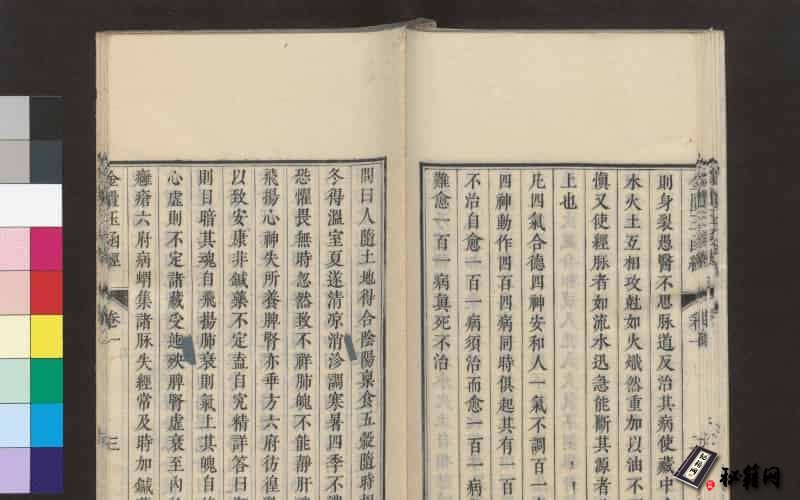 則身裂愚醫不思脉道反治其病使藏中
水火土互相攻尅如火熾然重加以油不
慎又使經脉者如流水迅急能斷其源者
上也
凡四氣合德四神安和人一氣不調百一
四神動作四百四病同時俱起其有一百
不治自愈一百一病須治而愈一百一病
難愈一百一病真死不治
問曰人隨土地得合陰陽稟食五穀隨時
冬得溫室夏遂清涼消沴調寒暑四季不
恐懼畏無時忽然致不祥肺魄不能靜肝
飛揚心神失所養脾腎亦乖方六府彷徨
以致安康非鍼藥不定盍自究精詳答曰
則目暗其魂自飛揚肺衰則氣上其魄自
心虛則不定諸藏受迤殃脾腎虛衰至內
癰瘡六府病蝟集諸脉失經常及時加鍼
金匱玉函經 卷一 三
秘籍网